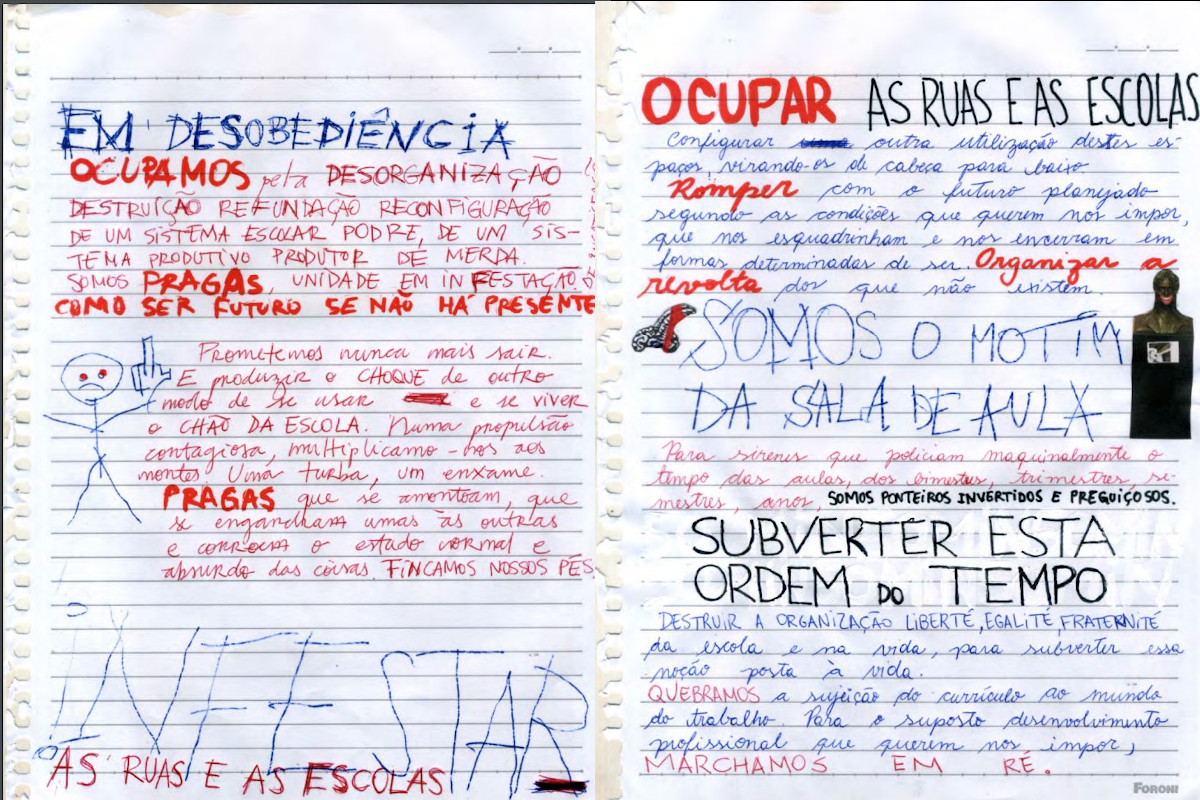 EM DESOBEDIÊNCIA
OCUPAMOS pela DESORGANIZAÇÃO
DESTRUIÇÃO REFUNDAÇÃO RECONFIGURAÇÃO
DE UM SISTEMA ESCOLAR PODRE, DE UM SIS-
TEMA PRODUTIVO PRODUTOR DE MERDA.
SOMOS PRAGAS, UNIDADE EM INFESTAÇÃO.
COMO SER FUTURO SE NÃO HÁ PRESENTE
Prometemos nunca mais sair.
E produzir o CHOQUE de outro
modo de se usar e se viver
o CHÃO DA ESCOLA. Numa propulsão
contagiosa, multiplicamo-nos aos
montes! Uma turba, um enxame.
PRAGAS que se amontoam, que
se engancham umas às outras
e corroem o estado normal e
absurdo das coisas. FINCAMOS NOSSOS PÉS
INFESTAR
AS RUAS E AS ESCOLAS
OCUPAR AS RUAS E AS ESCOLAS
Configurar outra utilização destes es-
paços, virando-os de cabeça para baixo.
Romper com o futuro planejado
segundo as condições que querem nos impor,
que nos esquadrinham e nos encerram em
formas determinadas de ser. Organizar a
revolta dos que não existem.
SOMOS O MOTIM
DA SALA DE AULA
Para sirenes que policiam maquinalmente o
tempo das aulas, dos bimestres, trimestres, se-
mestres, anos, SOMOS PONTEIROS INVERTIDOS E PREGUIÇOSOS.
SUBVERTER ESTA
ORDEM DO TEMPO
DESTRUIR A ORGANIZAÇÃO LIBERTÉ, EGALITÉ, FRATERNITÉ
da escola e na vida, para subverter essa
noção posta à vida.
QUEBRAMOS a sujeição do currículo ao mundo
do trabalho. Para o suposto desenvolvimento
profissional que querem nos impor,
MARCHAMOS EM RÉ.
FORONI